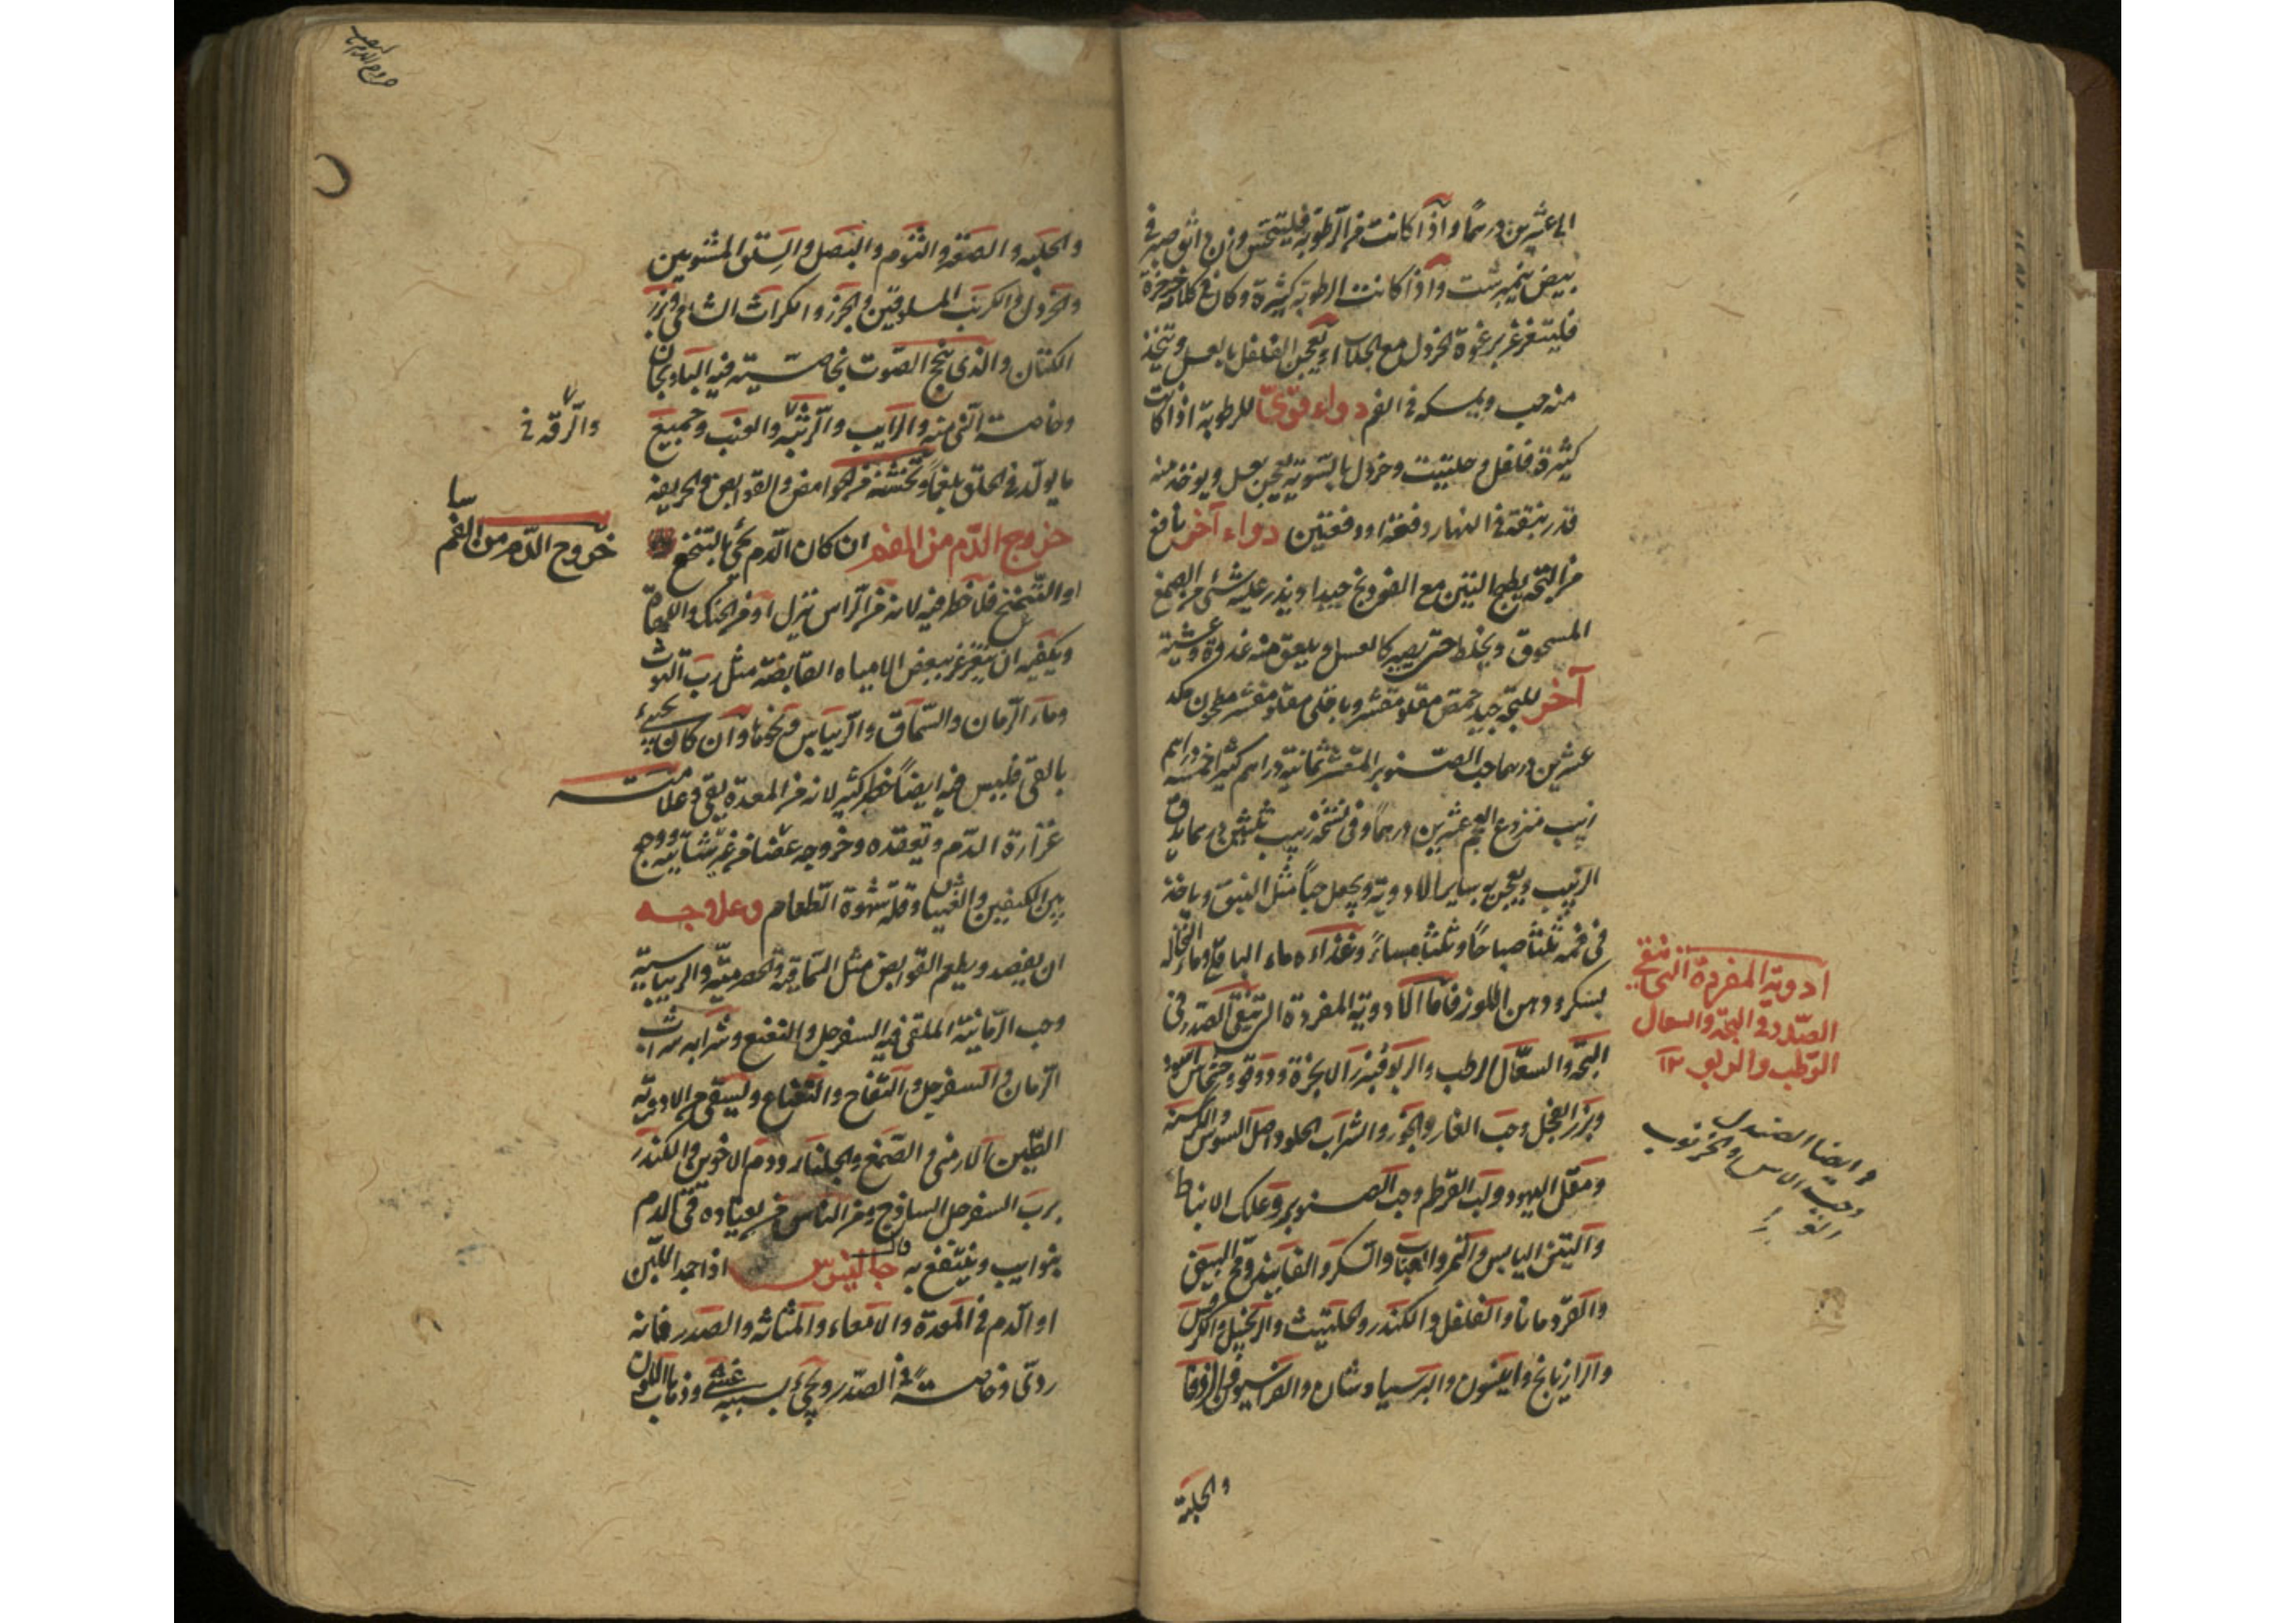 الى عشرين درهما واذا كانت من الرطوبة فليتحسى وزن دانق في
بيض نيمبرشت واذا كانت الرطوبة كثيرة وكان في كلامه خرخرة
فليتغرغر برغوة الخردل مع الجلاب او يعجن الفلفل بالعسل ويتخذ
منه حب ويمسكه في الفم دواء قوى للرطوبة اذا كانت
كثيرة فلفل وحلتيت وخردل بالسوية يعجن بعسل ويوخذ منه
قدر بندقة في النهار دفعة او دفعتين دواء آخر نافع
من البحة يطبخ التين مع الفودنج جيدا ويذر عليه شئ من الصمغ
المسحوق ويخلط حتى يصير كالعسل ويلعق منه غدوة وعشية
آخر للبحة جيد حمص مقلو مقشر وباقلى مقلو مقشر مطحون
عشرين درهما حب الصنوبر المقشر ثمانية دراهم كثيرا خمسة دراهم
زبيب منزوع العجم عشرين درهما وفي نسخة زبيب ثلثين درهما يدق
الزبيب ويعجن به ساير الادوية ويجعل حبا مثل النبق وياخذ
في فمه ثلثا صباحا وثلثا مساء وغذاءه ماء الباقلى وماء النخالة
بسكر ودهن اللوز فاما الادوية المفردة التي تنقي الصدر في
البحة والسعال الرطب والربو فبزر الانجرة ودوقو وخشخاش اسود
وبزر الفجل وحب الغار والجوز والشراب الحلو واصل السوس والكرسنة
ومقل اليهود ولب القرطم وحب الصنوبر وعلك الانباط
والتين اليابس والتمر والعناب والسكر والفانيذ ومح البيض
والقردمانا والفلفل والكندر والحلتيت والزنجبيل والكرفس
والرازيانج وانيسون والبرسياوشان والفراسيون والزوفا
والحلبة
ادوية المفردة التي تنقي
الصدر في البحة والسعال
الرطب والربو ١٢
وايضا الصندل
وحب الاس والخرنوب
والحلبة والصعتر والثوم والبصل والسلق المشويين
والخردل والكرنب المسلوقين والجزر والكراث الشامي وبزر
الكتان والذي يبح الصوت بخاصيته فيه الباذنجان
وخاصة الني منه والرايب والرثبه والعنب وجميع
ما يولد في الحلق بلغما وتخشنه من الحوامض والقوابض والحريفة
خروج الدم من الفم ان كان الدم يجئ بالتنخع
او التنحنح فلا خطر فيه لانه من الراس ينزل او من الحنك واللهاة
ويكفيه ان يتغرغر ببعض المياه القابضة مثل رب التوت
وماء الرمان والسماق والريباس ونحوها وان كان يجيئ
بالقئ فليس فيه ايضا خطر كثير لانه من المعدة يقئ وعلامته
غزارة الدم وتعقده وخروجه عفنا من غير ووجع
بين الكتفين والغثيان وقلة شهوة الطعام وعلاجه
ان يفصد ويطعم القوابض مثل السماقية والحصرمية والريباسية
وحب الرمانية الملقى فيه السفرجل والنعنع وشرابه شراب
الرمان والسفرجل والتفاح والنعناع وليسقى من الادوية
الطين الارمني والصمغ والجلنار ودم الاخوين والكندر
برب السفرجل الساذج ومن الناس من يعتاده قئ الدم
بنوايب وينتفع به قال جالينوس اذا جمد اللبن
او الدم في المعدة والامعاء والمثانة والصدر فانه
ردئ وخاصة في الصدر ويجئ بسببه غشي وذهاب اللون
والرقه
خروج الدم من الفم